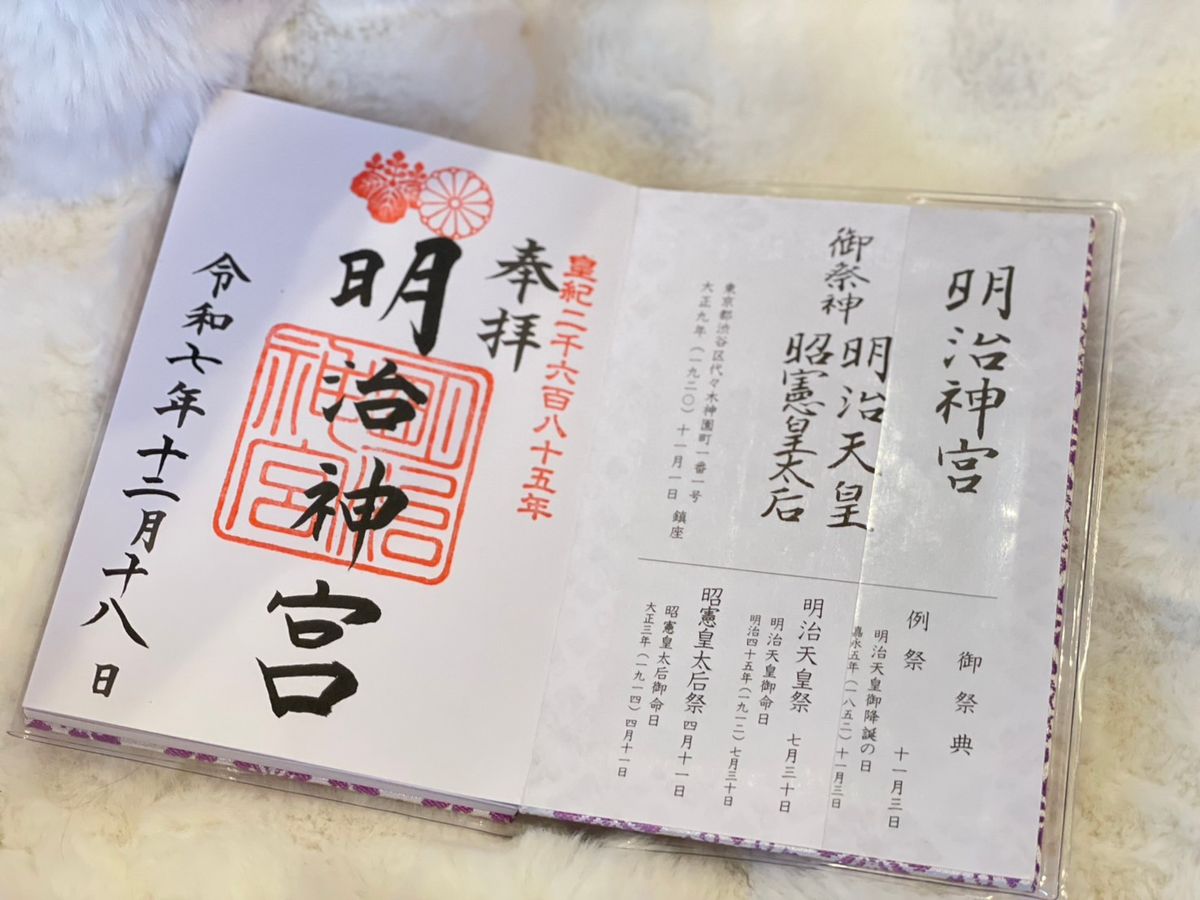 明治神宮
御祭神
明治天皇
昭憲皇太后
東京都渋谷区代々木神園町一番一号
大正九年(一九二〇)十一月一日 鎮座
御祭典
例祭 十一月三日
明治天皇御降誕の日
嘉永五年(一八五二)十一月三日
明治天皇祭 七月三十日
明治天皇御命日
明治四十五年(一九一二)七月三十日
昭憲皇太后祭 四月十一日
昭憲皇太后御命日
大正三年(一九一四)四月十一日
皇紀二千六百八十五年
奉拝
明治神宮
明治神宮
令和七年十二月十八日